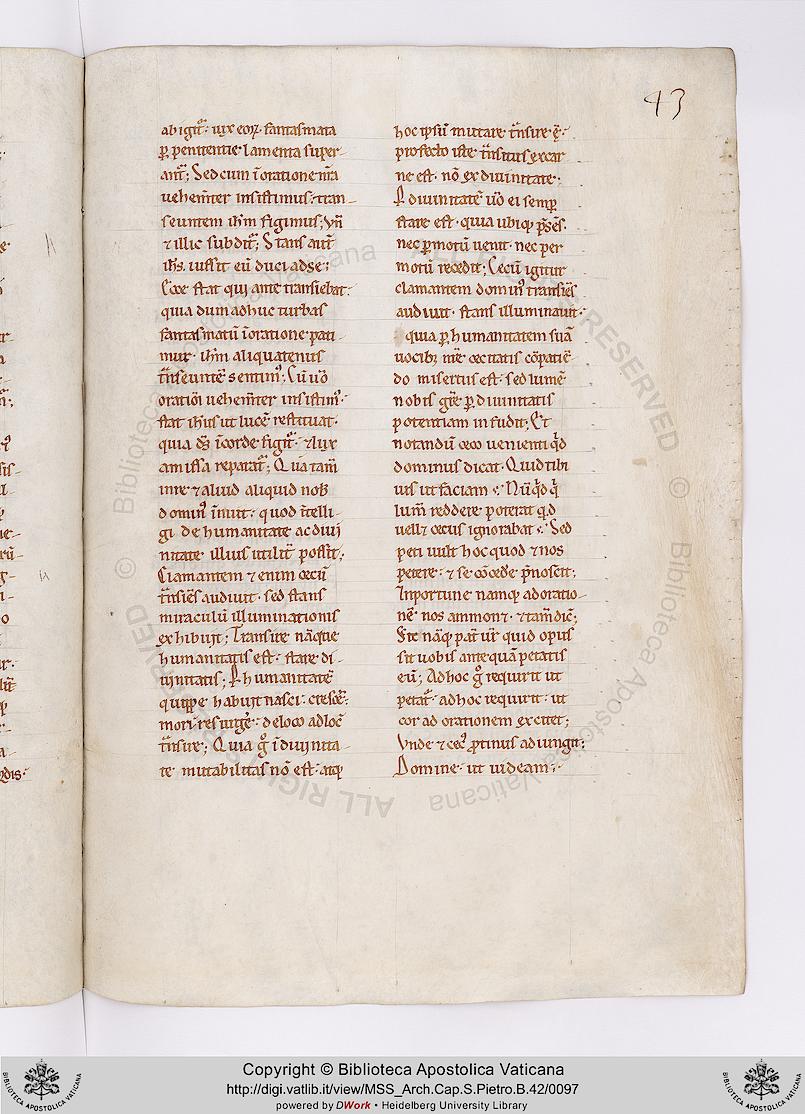 43
abigit᷑. vix eoꝝ fantasmata
ꝑ penitentie lamenta super-
ant᷑; Sed cum ī oratione nr̄a
uehem̄ter insistimus: tran-
seuntem ih̄m figimus; Vn̄
⁊ illic subdit᷑; Stans aut̄
ih̄s. iussit eū duci ad se;
Ecce stat qui ante transiebat.
quia dum adhuc turbas
fantasmatū ī oratione pati-
mur. ih̄m aliquatenus
tn̄seuntē sentimꝰ; Cū u͛o
orationi uehem̄ter insistimꝰ.
stat ih̄us ut lucē restituat.
quia ds̄ ī corde figit᷑. ⁊ lux
amissa reparat᷑; Qua tam̄
in re ⁊ aliud aliquid nob̄
dominꝰ īnuit. quod ītelli-
gi de humanitate ac diui
nitate illius utilit̄ possit;
Clamantem ⁊enim cecū
tn̄siēs audiuit. sed stans
miraculū illuminationis
exhibuit; Transire nāque
humanitatis est. stare di-
uinitatis; Ꝑ humanitatē
quippe habuit nasci. cresce͛.
mori. resurge͛. de loco ad locū
tn̄sire; Quia g̊ ī diuinita-
te mutabilitas nō est. atq̨
hoc ipsū mutare tn̄sire ē.
profecto iste tn̄situs ex car
ne est. nō ex diuinitate;
Ꝑ diuinitatē u͛o ei semꝑ
stare est. quia ubiq̨ p̄sēs.
nec ꝑ motū uenit. nec per
motū recedit; Cecū igitur
clamantem dominꝰ transiēs
audiuit. stans illuminauit.
quia ꝑ humanitatem suā
uocibꝫ nr̄e cecitatis cōpatiē-
do misertus est. sed lumē
nobis gr̄e ꝑ diuinitatis
potentiam infudit; Et
notandū ceco uenienti qͥd
dominus dicat. Quid tibi
uis ut faciam; Nūqͥd qͥ
lum̄ reddere poterat qͥd
uell⁊ cecus ignorabat; Sed
peti uult hoc quod ⁊ nos
petere. ⁊ se cōcede͛ p̄noscit;
Inportune namq̨ ad oratio-
nē nos ammon⁊. ⁊ tam̄ dic̄;
Scit nāq̨ pat͛ ur̄ quid opus
sit uobis ante quā petatis
eū; Ad hoc g̊ requirit ut
petat᷑. ad hoc requirit. ut
cor ad orationem excitet;
Vnde ⁊ cecꝰ ꝓtinus adiungit;
Domine. ut uideam;
Copyright © Biblioteca Apostolica Vaticana
http://digi.vatlib.it/view/MSS_Arch.Cap.S.Pietro.B.42/0097
powered by DWork • Heidelberg University Library